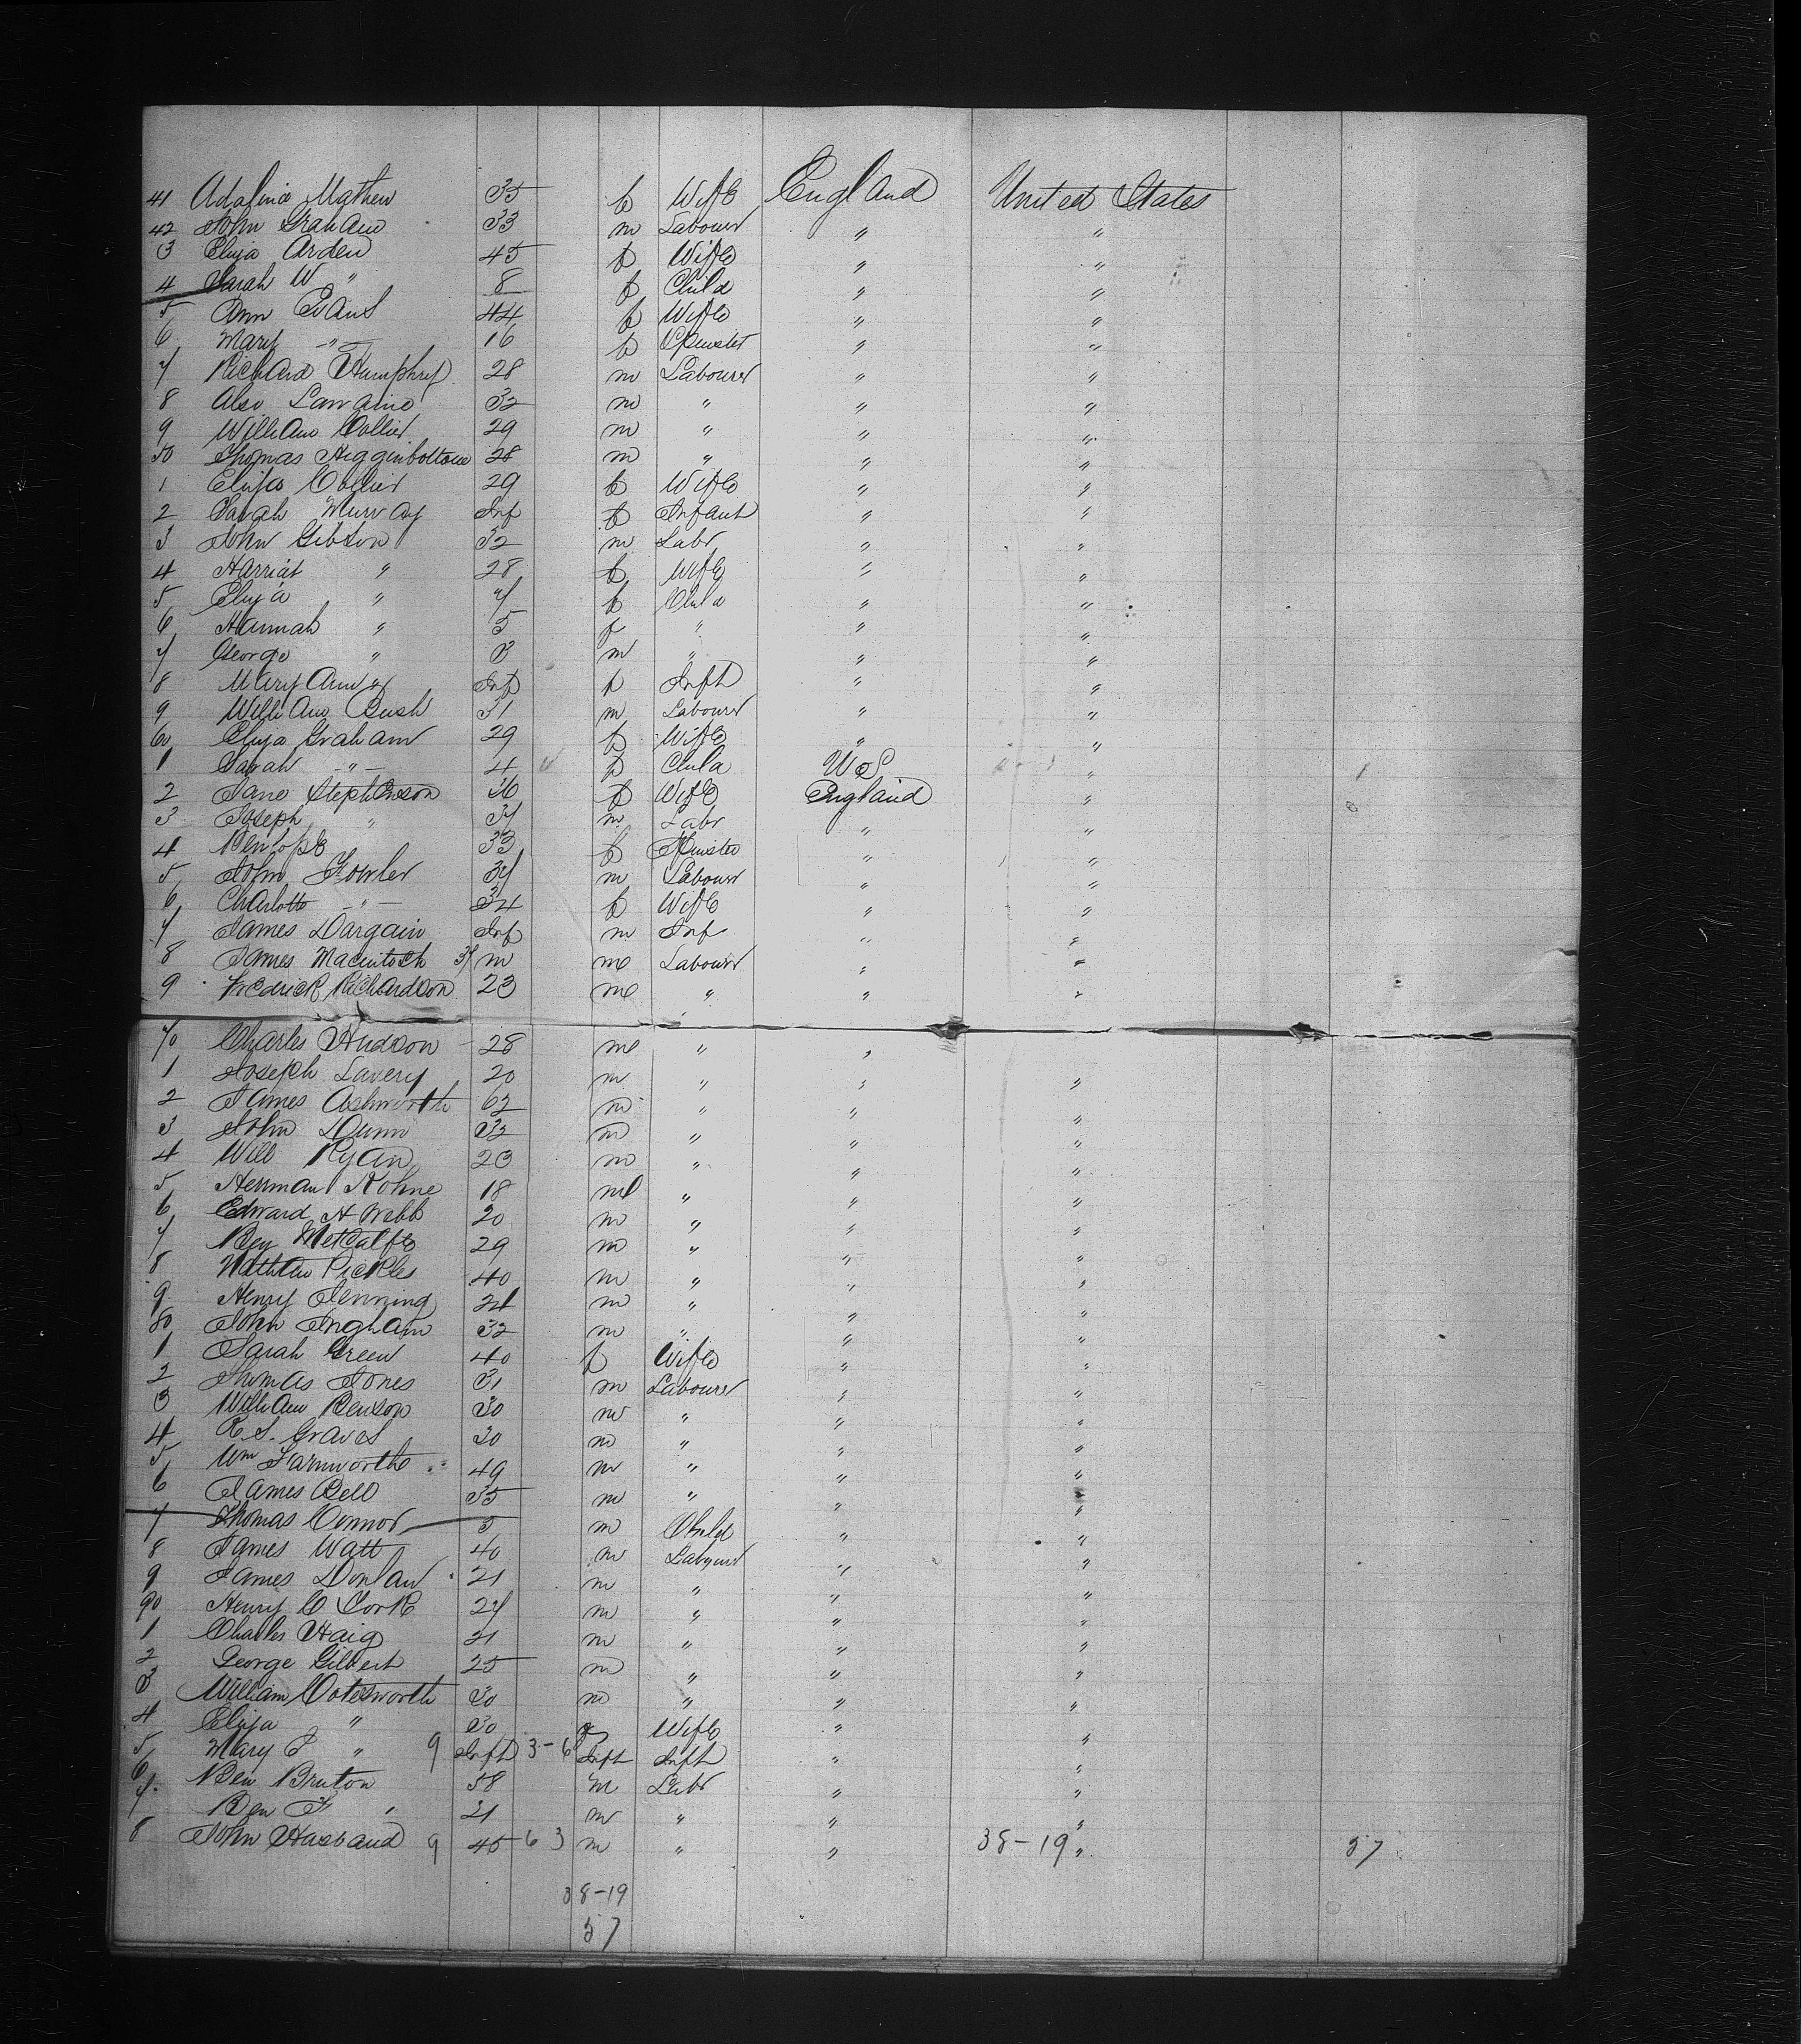 41 Adalina Mathew 35 f Wife England United States
42 John Graham 33 m Labourer " "
3 Eliza Arden 45 f Wife " "
4 Sarah W " 8 f Child " "
5 Ann Evans 44 f Wife " "
6 Mary " 16 f Spinster " "
7 Richard Humphry 28 m Labourer " "
8 Alex Lorraine 32 m " " "
9 William Collier 29 m " " "
50 Thomas Higginbottom 28 m " " "
1 Eliza Collier 29 f Wife " "
2 Sarah Murray Inf f Infant " "
3 John Gibson 32 m Labr " "
4 Harriat " 28 f Wife " "
5 Eliza " 7 f Child " "
6 Hannah " 5 f " " "
7 George " 3 m " " "
8 Mary Ann " Inf f Inft " "
9 William Bush 31 m Labourer " "
60 Eliza Graham 29 f Wife " "
1 Sarah " 4 f Child US "
2 Jane Stephenson 36 f Wife England "
3 Joseph " 37 m Labr " "
4 Penlope 33 f Spinster " "
5 John Fowler 37 m Labourer " "
6 Charlotte " 34 f Wife " "
7 James Dargain Inf m Inf " "
8 James Macintosh 37 m m Labourer " "
9 Fredrick Richardson 23 m " " "
70 Charles Hudson 28 m " "
1 Joseph Lavery 20 m " " "
2 James Ashworth 62 m " " "
3 John Dunn 32 m " " "
4 Will Ryan 23 m " " "
5 Herman Kohne 18 m " " "
6 Edward H Webb 20 m " " "
7 Ben Metcalfe 29 m " " "
8 Pickles 40 m " " "
9 Henry Jenning 21 m " " "
80 John Ingham 32 m " " "
1 Sarah Green 40 f Wife " "
2 Thomas Jones 31 m Labourer " "
3 William Benson 30 m " " "
4 R. S. Graves 30 m " " "
5 Wm Farnworth 49 m " " "
6 James Bell 35 m " " "
7 Thomas Connor 5 m Child " "
8 James Watt 40 m Labourer " "
9 James Donlan 21 m " " "
90 Henry C York 27 m " " "
1 Charles Haig 21 m " " "
2 George Gilbert 25 m " " "
3 William Cotesworth 30 m " " "
4 Eliza " 30 f Wife " "
5 Mary J " 9 Inft 3-6 Inft Inft " "
6 Ben Bruton 58 m Labr " "
7 Ben F " 21 m " " "
8 John Husband 9 45 6 3 m " " 38-19 " 57
38-19
57